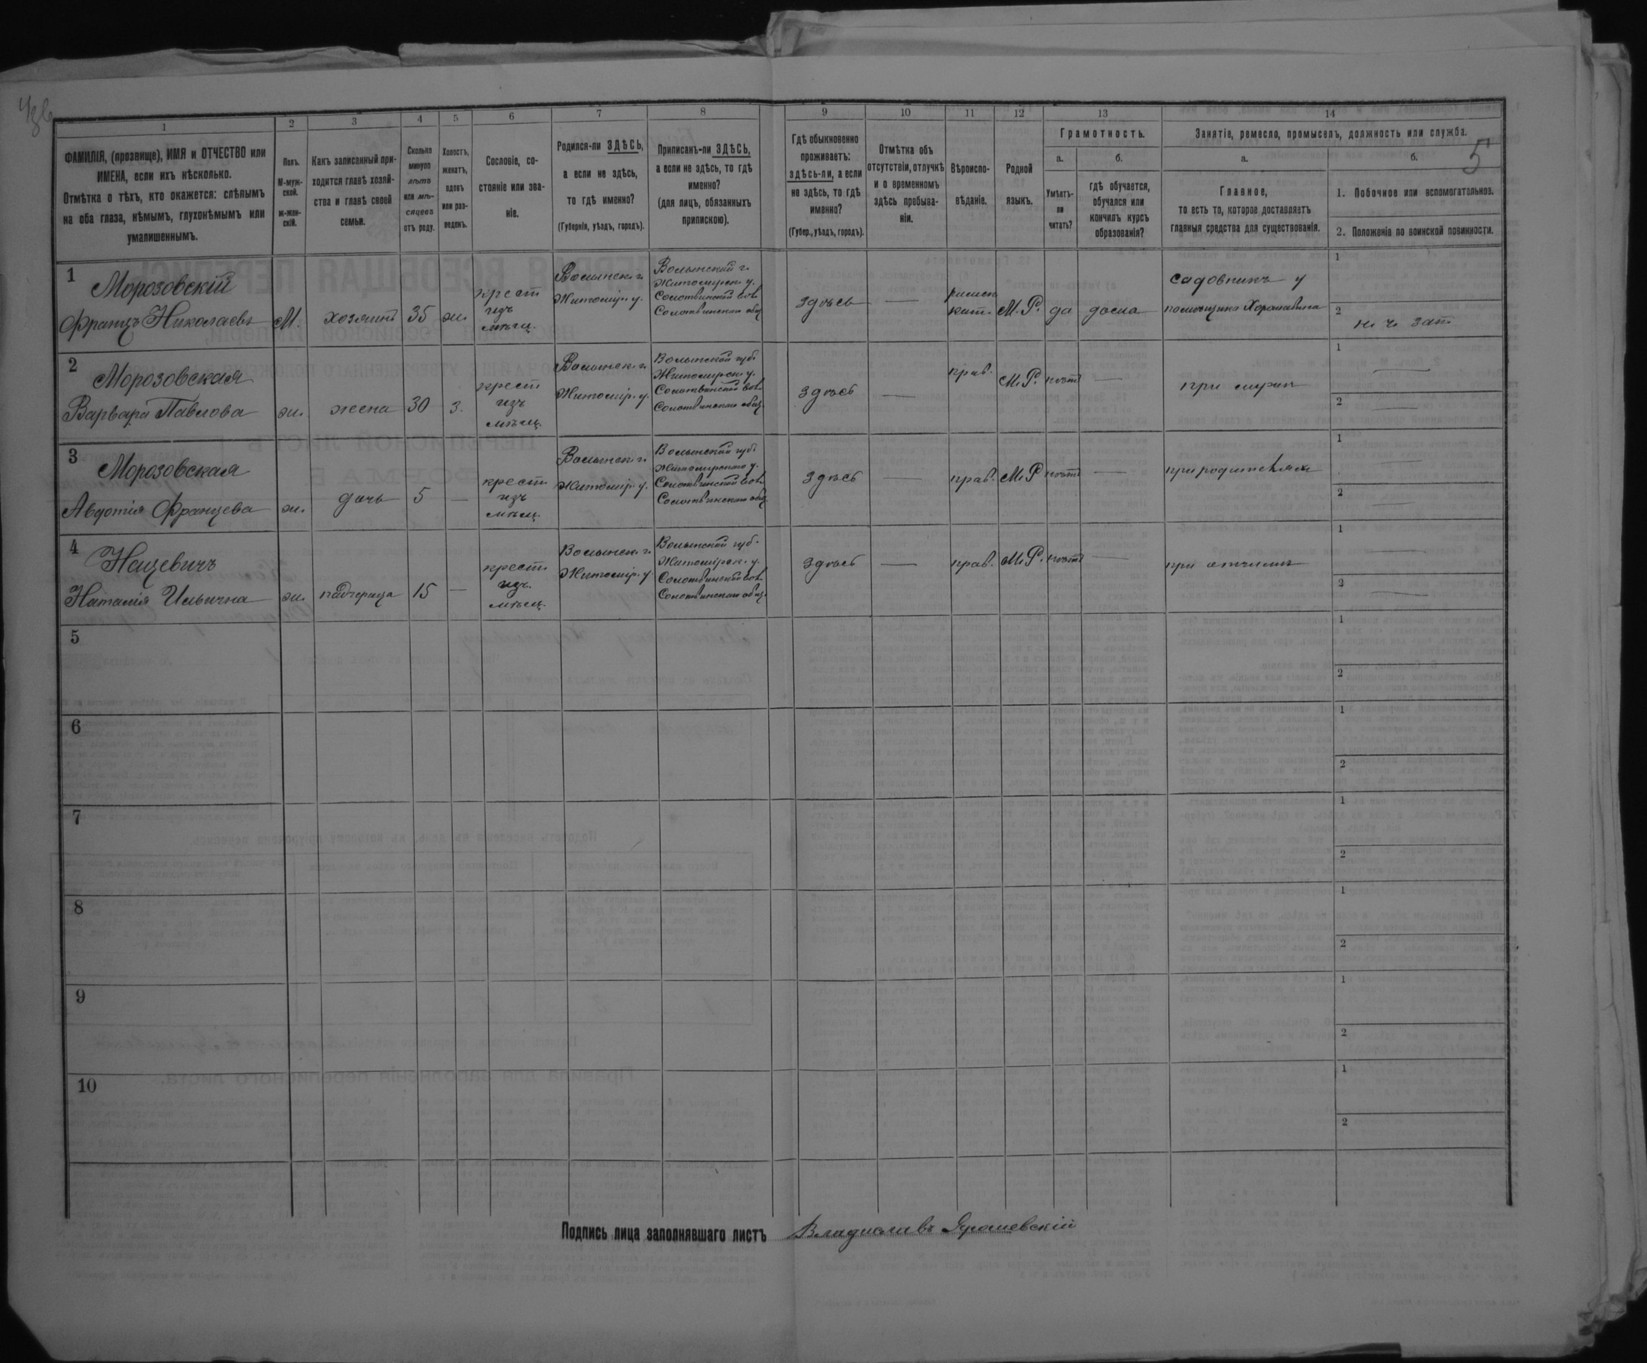 5
1 2 3 4 5 6 7 8 9 10 11 12 13 14
ФАМИЛІЯ, (прозвище), ИМЯ и ОТЧЕСТВО или
ИМЕНА, если ихъ нѣсколько.
Отмѣтка о тѣхъ, кто окажется: слѣпымъ
на оба глаза, нѣмымъ, глухонѣмымъ или
умалишеннымъ.
Полъ.
М-муж-
ской.
ж-жен-
скій.
Какъ записанный при-
ходится главѣ хозяй-
ства и главѣ своей
семьи.
Сколько
минуло
лѣтъ
или мѣ-
сяцевъ
отъ роду.
Холостъ,
женатъ,
вдовъ
или раз-
веденъ.
Сословіе, со-
стояніе или зва-
ніе.
Родился-ли ЗДѢСЬ,
а если не здѣсь,
то гдѣ именно?
(Губернія, уѣздъ, городъ).
Приписанъ-ли ЗДѢСЬ,
а если не здѣсь, то гдѣ
именно?
(для лицъ, обязанныхъ
припискою).
Гдѣ обыкновенно
проживаетъ:
здѣсь-ли, а если
не здѣсь, то гдѣ
именно?
(Губер., уѣздъ, городъ).
Отмѣтка объ
отсутствіи, отлучкѣ
и о временномъ
здѣсь пребыва-
ніи.
Вѣроиспо-
вѣданіе.
Родной
языкъ.
Грамотность.
а.
Умѣетъ-
ли
читать?
б.
гдѣ обучается,
обучался или
кончилъ курсъ
образованія?
Занятіе, ремесло, промыселъ, должность или служба.
а.
Главное,
то есть то, которое доставляетъ
главныя средства для существованія.
б.
1. Побочное или вспомогательное.
2. Положеніе по воинской повинности.
1
Морозовскій
Францъ Николаевъ
М.
хозяинъ
35
ж.
крест
изъ
мѣщ.
Волынск. г.
Житомір. у.
Волынской г.
Житомирск. у.
здѣсь
—
римск
кат.
М. Р.
да
дома
садовникъ у
1
2
2
Морозовская
Варвара Павлова
ж.
жена
30
з.
крест
изъ
мѣщ.
Волынск. г.
Житомір. у.
Волынской губ.
Житомирск. у.
здѣсь
—
прав.
М. Р.
нѣтъ
—
при мужѣ
1 —
2 —
3
Морозовская
Авдотія Францева
ж.
дочь
5
—
крест
изъ
мѣщ.
Волынск. г.
Житомір. у.
Волынской губ.
Житомирской у.
здѣсь
—
прав.
М. Р.
нѣтъ
—
при родителяхъ
1 —
2 —
4
Нацевичъ
Наталія Ильична
ж.
падчерица
15
—
крест
изъ
мѣщ.
Волынск. г.
Житомір. у.
Волынской губ.
Житомирск. у.
здѣсь
—
прав.
М. Р.
нѣтъ
—
при отчимѣ
1 —
2 —
5
1
2
6
1
2
7
1
2
8
1
2
9
1
2
10
1
2
Подпись лица заполнявшаго листъ Владиславъ Ярошевскій